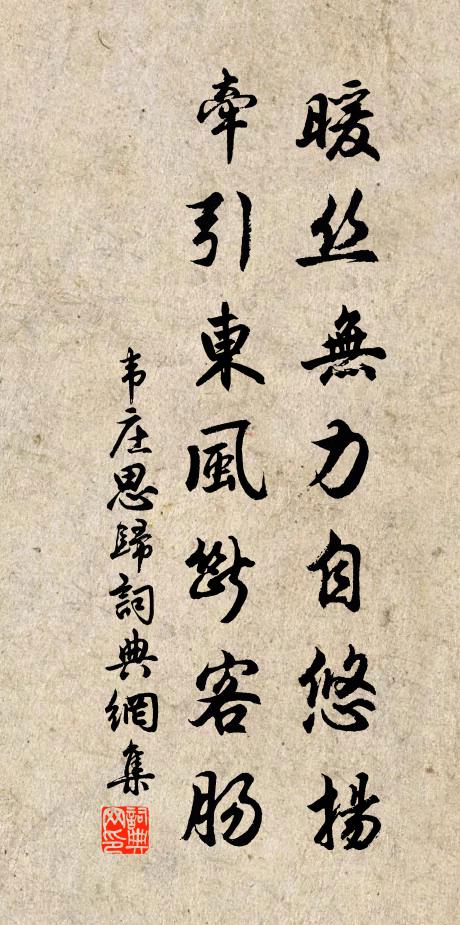 暖丝無力自悠揚
牽引東風斷客腸
韦庄思歸詞典網集
詞典网印